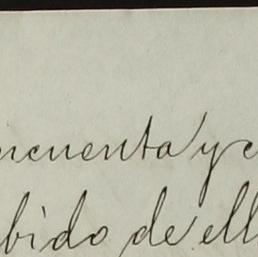 ncuenta y c
bido de ell